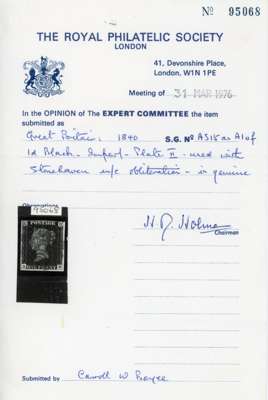 Nº 95068
THE ROYAL PHILATELIC SOCIETY
LONDON
41, Devonshire Place,
London, W1N 1PE
Meeting of 31 MAR 1976
In the OPINION of The EXPERT COMMITTEE the item
submitted as
Great Britain, 1840 S.G. Nº AS15
1d Black - Imperf - Plate II - used with
Stonehaven obliteration - is genuine
Observations
95068
Chairman
Submitted by Carroll W